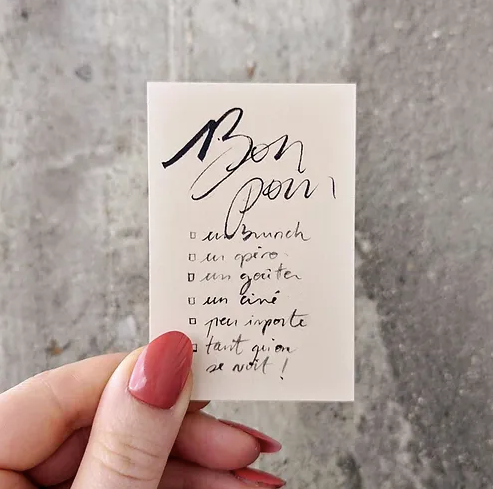 Bon
pour
un brunch
un apéro
un goûter
un ciné
peu importe
tant qu'on
se voit !